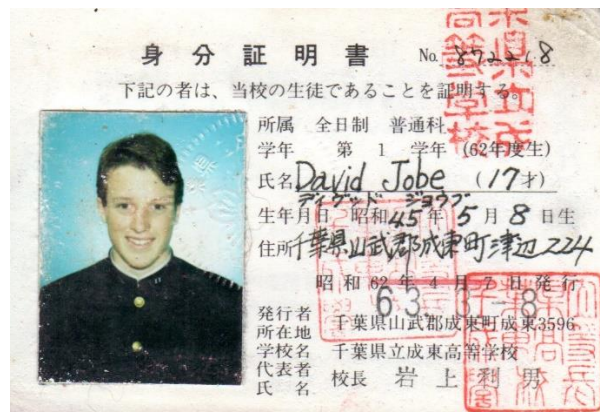 身分証明書 No. 872218
下記の者は、当校の生徒であることを証明する。
所属 全日制 普通科
学年 第 1 学年 (62年度生)
氏名 David Jobe (17才)
デイヴッド ジョウブ
生年月日 昭和45年5月8日生
住所 千葉県山武郡成東町津辺224
昭和62年4月7日発行
63.
発行者
所在地 千葉県山武郡成東町成東3596
学校名 千葉県立成東高等学校
代表者
氏名 校長 岩上利男